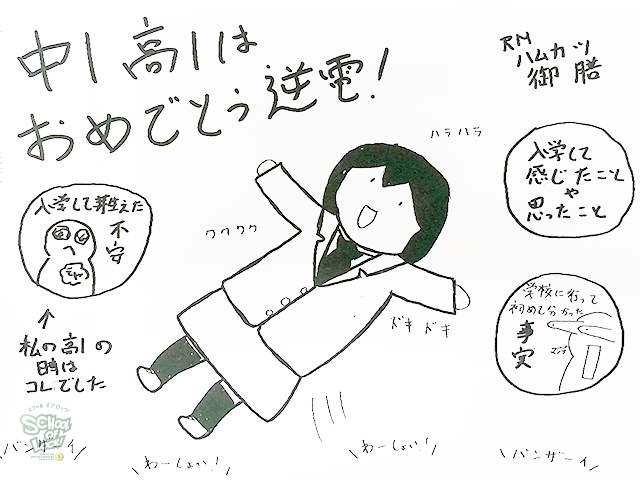 中1高1は
おめでとう逆電!
RN
ハムカツ
御膳
ハラハラ
入学して
感じたこと
や
思ったこと
入学して芽生えた
不安
ワクワク
ドキドキ
学校に行って
初めて分かった
事実
↑
私の高1の
時は
コレでした
SCHOOL OF LOCK!
バンザーイ
わーしょい!
わーしょい!
バンザーイ